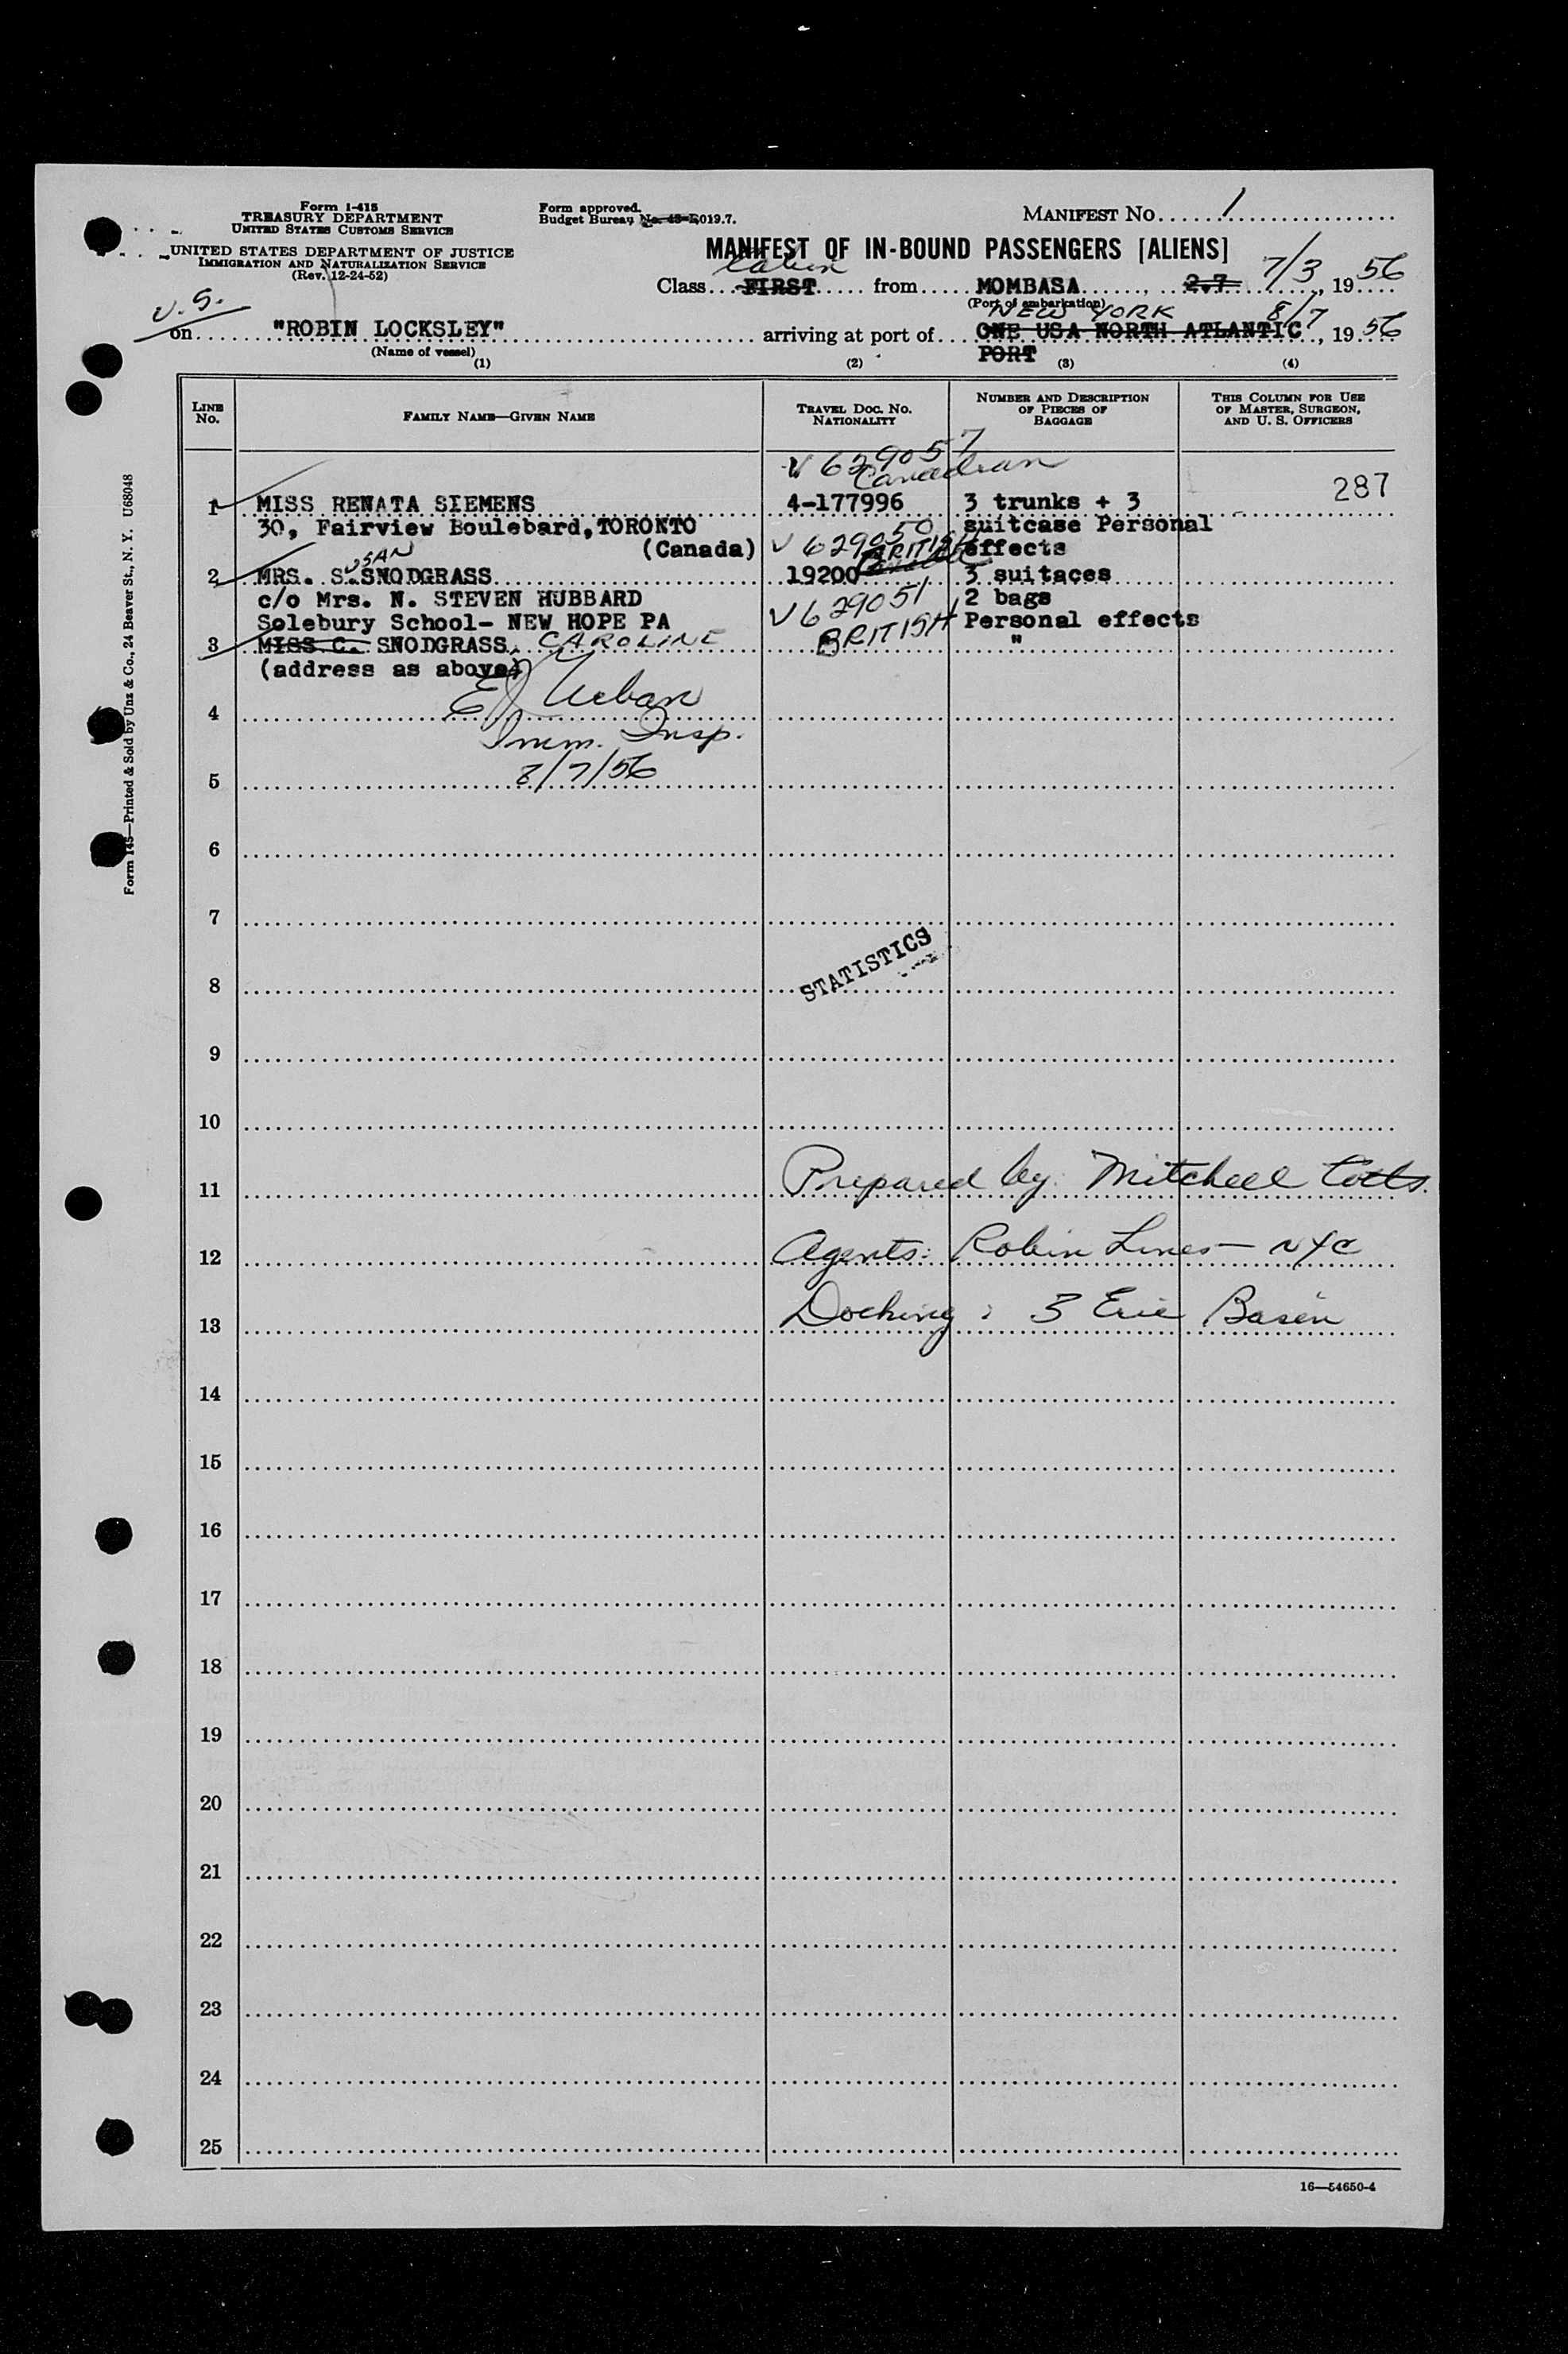 Form I-415
TREASURY DEPARTMENT
UNITED STATES CUSTOMS SERVICE
UNITED STATES DEPARTMENT OF JUSTICE
IMMIGRATION AND NATURALIZATION SERVICE
(Rev. 12-24-52)
Form approved.
Budget Bureau No. 43-R019.7.
MANIFEST NO. 1
MANIFEST OF IN-BOUND PASSENGERS [ALIENS]
Cabin
Class FIRST from MOMBASA, 2.7 7/3, 1956
(Port of embarkation)
U.S.
NEW YORK 8/7
on "ROBIN LOCKSLEY" arriving at port of ONE USA NORTH ATLANTIC, 1956
PORT
(Name of vessel)
(1) (2) (3) (4)
LINE NO.
FAMILY NAME—GIVEN NAME
TRAVEL DOC. NO. NATIONALITY
NUMBER AND DESCRIPTION OF PIECES OF BAGGAGE
THIS COLUMN FOR USE OF MASTER, SURGEON, AND U. S. OFFICERS
V 629057
Canadian
287
1 MISS RENATA SIEMENS 4-177996 3 trunks + 3
30, Fairview Boulebard, TORONTO suitcase Personal
(Canada) V 629050 BRITISH effects
USAN
2 MRS. S. SNODGRASS 19200 3 suitaces
c/o Mrs. N. STEVEN HUBBARD V 629051 2 bags
Solebury School- NEW HOPE PA BRITISH Personal effects
3 MISS C. SNODGRASS, CAROLINE "
(address as above)
E J Urban
4
Imm. Insp.
8/7/56
5
6
7
STATISTICS
8
9
10
11 Prepared by: Mitchell Cotts.
12 Agents: Robin Lines — NYC
13 Docking: 3 Erie Basin
14
15
16
17
18
19
20
21
22
23
24
25
16—54650-4
Form 145—Printed & Sold by Unz & Co., 24 Beaver St., N. Y. U68048